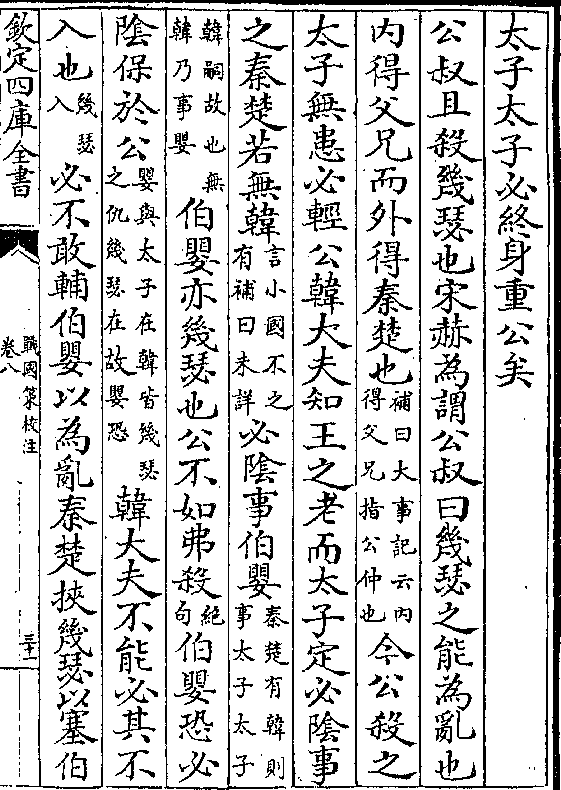 太子太子必終身重公矣
公叔且殺幾瑟也宋赫為謂公叔曰幾瑟之能為亂也
内得父兄而外得秦楚也補曰大事記云内得父兄指公仲也今公殺之
太子無患必輕公韓大夫知王之老而太子定必陰事
之秦楚若無韓言小國不之有補曰未詳必陰事伯嬰秦楚有韓則事太子太子
韓嗣故也無韓乃事嬰伯嬰亦幾瑟也公不如弗殺絶句伯嬰恐必
陰保於公嬰與太子在韓皆幾瑟之仇幾瑟在故嬰恐韓大夫不能必其不
入也幾瑟入必不敢輔伯嬰以為亂秦楚挾幾瑟以塞伯
欽定四庫全書
戰國策校注
卷八
三十一